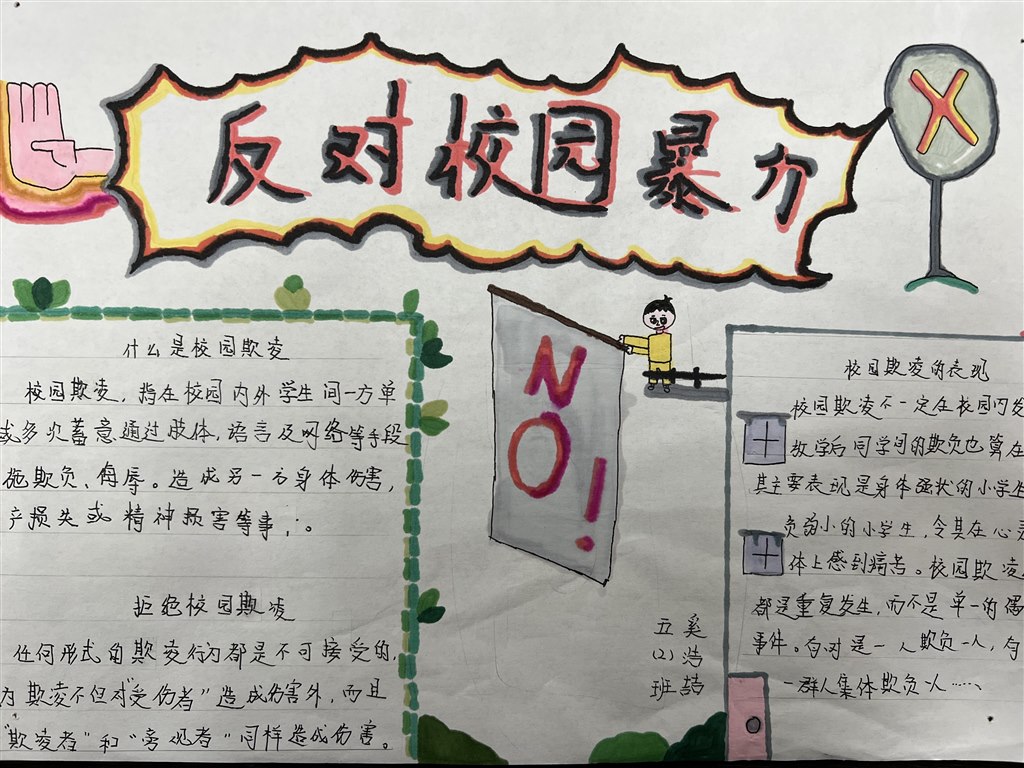 反对校园暴力
X
什么是校园欺凌
校园欺凌,指在校园内外学生间一方单
或多次蓄意通过肢体,语言及网络等手段
施欺负、侮辱。造成另一方身体伤害,
产损失或精神损害等事;。
拒绝校园欺凌
任何形式的欺凌行为都是不可接受的,
为欺凌不但对"受伤者"造成伤害外,而且
"欺凌者"和"旁观者"同样造成伤害。
NO!
五(2)班
奚浩喆
校园欺凌的表现
校园欺凌不一定在校园内发
教学后同学间的欺负也算在
其主要表现是身体强状的小学生
负弱小的小学生,令其在心灵
体上感到痛苦。校园欺凌
都是重复发生,而不是单一的偶
事件。有时是一人欺负一人,有
一群人集体欺负一人……